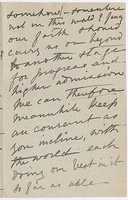 somehow - somewhere
not in this world I pray
our faith should
carry us on beyond
to another stage
for progress and
higher admission
We can therefore
meanwhile keep
as constant as
you incline, with
the world each
doing our best in it
so far as able